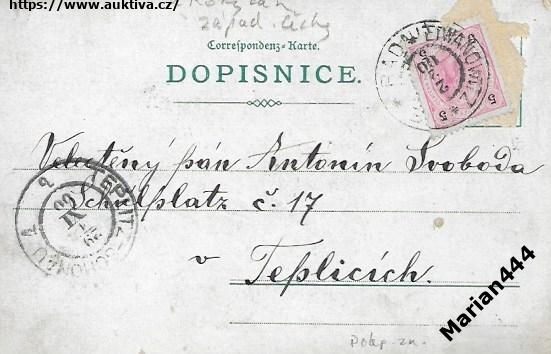 https://www.auktiva.cz/
západ. Čechy
Correspondenz-Karte.
DOPISNICE.
5 5
Velectěný pán Antonín Svoboda
Schulplatz č. 17
v Teplicích.
TEPLITZ-SCHÖNAU
Marian444